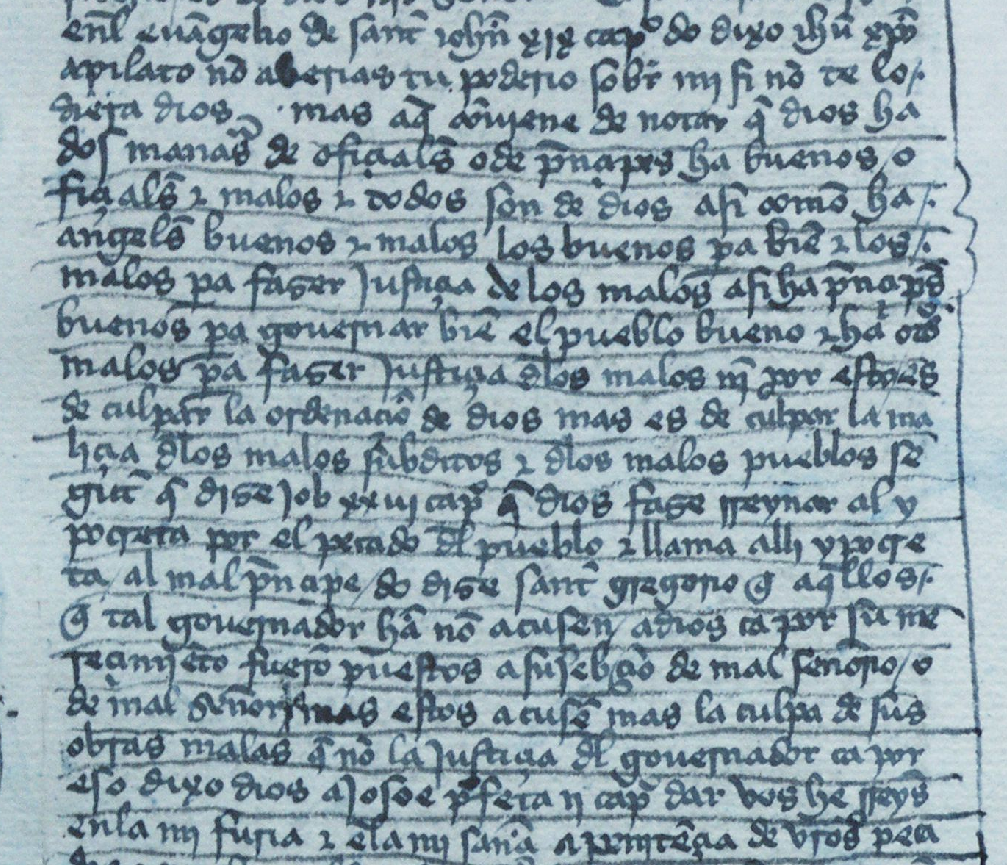 enl evangelio de sant iohn xix capo do dixo ihu xpo
a pilato no aberias tu poderio sobr mi si no te lo
diera dios mas aq conviene de notar q dios ha
dos manas de oficials o de pncipes ha buenos o
ficials & malos & todos son de dios asi como ha
angels buenos & malos los buenos pa bie & los
malos pa fazer justiçia de los malos asi ha pncipes
buenos pa governar bie el pueblo bueno & ha otos
malos pa fazer justiçia dlos malos ni por esto es
de culpar la ordenacio de dios mas es de culpar la ma
liçia dlos malos subditos & dlos malos pueblos se
gut q dize job xxvi capo q dios faze rreynar al y
pocreta por el pecado dl pueblo & llama alli ypocre
ta al mal pncipe do dize sant gregorio q aqllos
q tal governador ha no acusen a dios ca por su me
reçimieto fuero puestos a sujebçio de mal señorio o
de mal señor mas estos acuse mas la culpa de sus
obras malas q no la justiçia dl governador ca por
eso dixo dios a josoe pfeta ii capo dar vos he rreys
en la mi furia & e la mi saña a peniteçia de vros peca